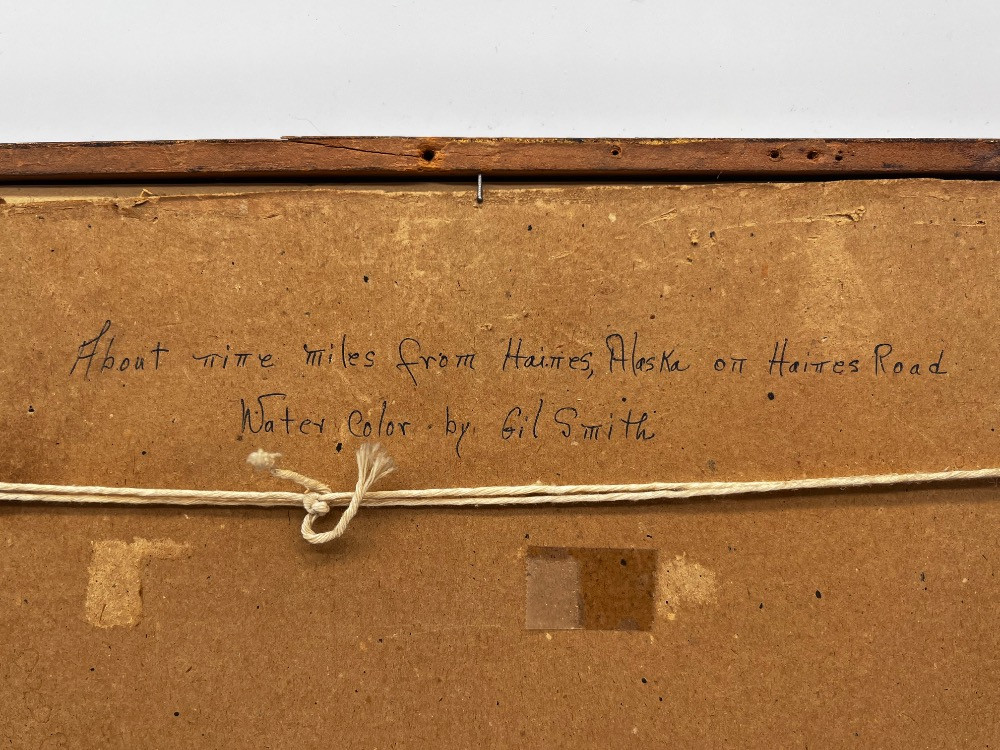 About nine miles from Haines, Alaska on Haines Road
Water Color by Gil Smith